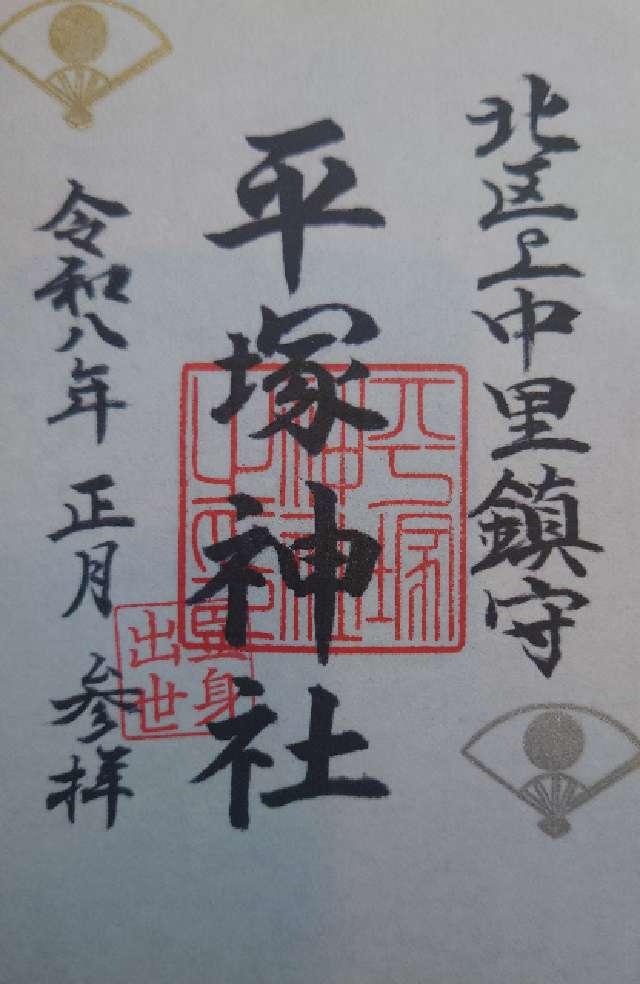 北区上中里鎮守
平塚神社
令和八年 正月 参拝
平塚
神社
之印
立身
出世